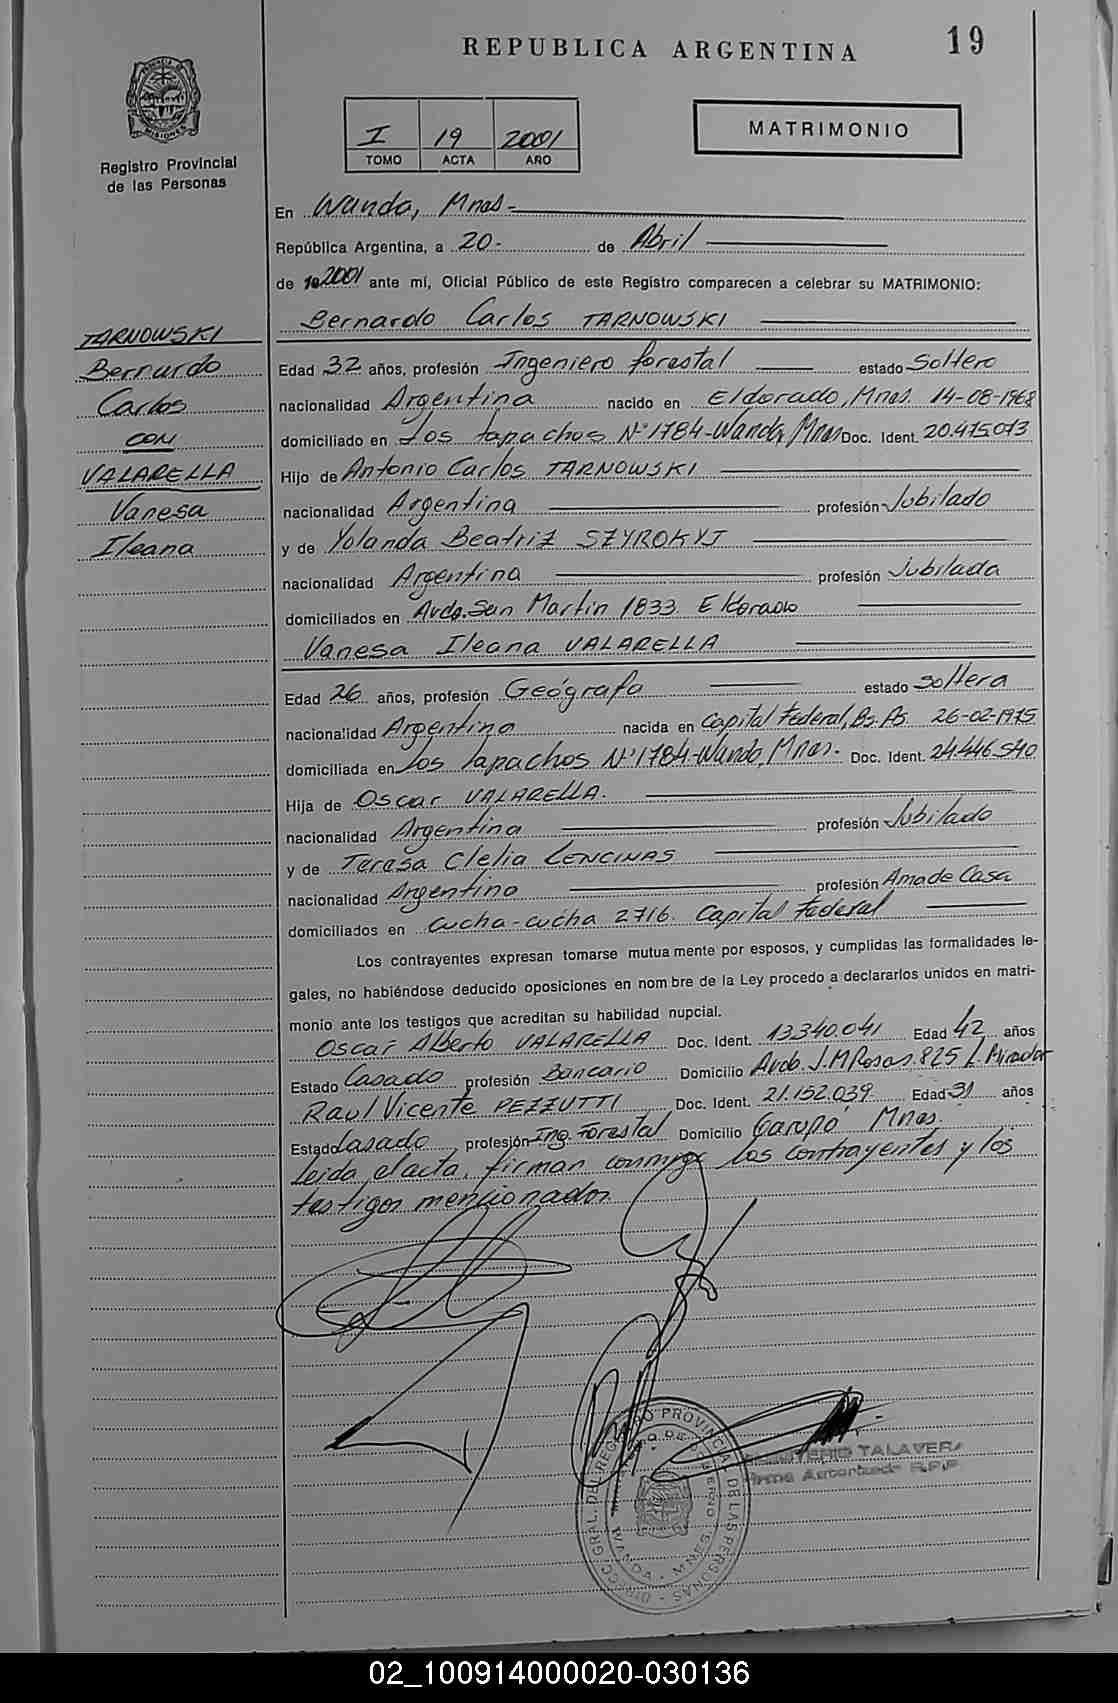 REPUBLICA ARGENTINA
19
PROVINCIA DE MISIONES
Registro Provincial
de las Personas
I 19 2001
TOMO ACTA AÑO
MATRIMONIO
TARNOWSKI
Bernardo
Carlos
CON
VALARELLA
Vanesa
Ileana
En Wanda, Mnes-
República Argentina, a 20- de Abril
de 2001 ante mí, Oficial Público de este Registro comparecen a celebrar su MATRIMONIO:
Bernardo Carlos TARNOWSKI
Edad 32 años, profesión Ingeniero forestal estado Soltero
nacionalidad Argentina nacido en Eldorado, Mnes. 14-08-1968
domiciliado en Los tapachos N°1784-Wanda, Mnes Doc. Ident. 20.475.073
Hijo de Antonio Carlos TARNOWSKI
nacionalidad Argentina profesión Jubilado
y de Yolanda Beatriz SZYROKYJ
nacionalidad Argentina profesión Jubilada
domiciliados en Avda. San Martin 1833. Eldorado
Vanesa Ileana VALARELLA
Edad 26 años, profesión Geógrafa estado soltera
nacionalidad Argentina nacida en Capital Federal, Bs. As. 26-02-1975
domiciliada en Los tapachos N°1784-Wanda, Mnes. Doc. Ident. 24.446.540
Hija de Oscar VALARELLA.
nacionalidad Argentina profesión Jubilado
y de Teresa Clelia LENCINAS
nacionalidad Argentina profesión Ama de Casa
domiciliados en Cucha-cucha 2716. Capital Federal
Los contrayentes expresan tomarse mutuamente por esposos, y cumplidas las formalidades le-
gales, no habiéndose deducido oposiciones en nombre de la Ley procedo a declararlos unidos en matri-
monio ante los testigos que acreditan su habilidad nupcial.
Oscar Alberto VALARELLA Doc. Ident. 13.340.041 Edad 42 años
Estado Casado profesión Bancario Domicilio Avda. J.M Rosas 825 L. Mirador
Raul Vicente PEZZUTTI Doc. Ident. 21.152.039. Edad 31 años
Estado Casado profesión Ing. Forestal Domicilio Garupá Mnes.
Leida el acta, firman conmigo los contrayentes y los
testigos mencionados
TALAVERA
Firma Autorizada R.P.P.
DIRECC. GRAL. DEL REGISTRO PROVINCIAL DE LAS PERSONAS
WANDA - MNES.
02_100914000020-030136